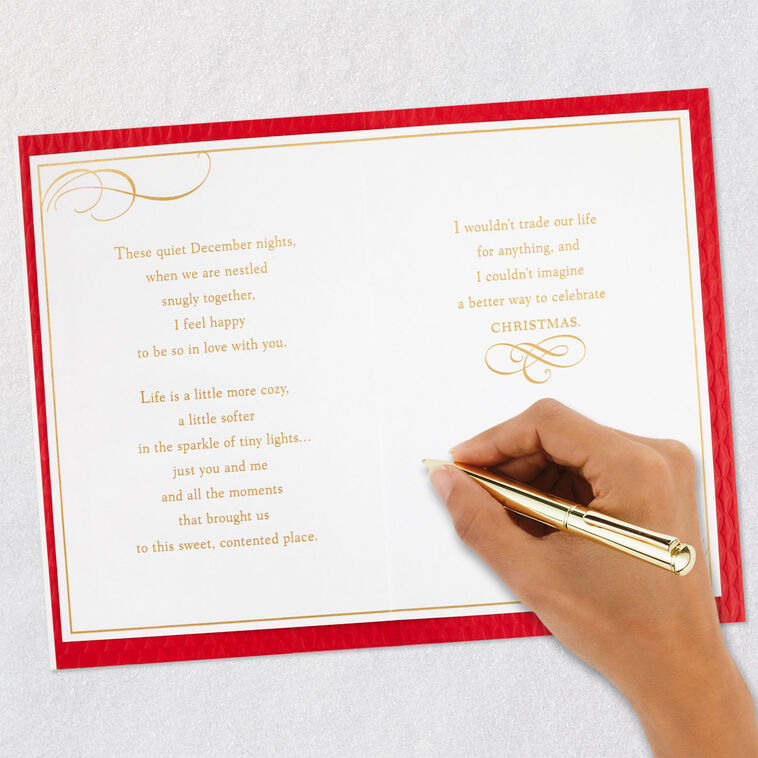 These quiet December nights,
when we are nestled
snugly together,
I feel happy
to be so in love with you.
Life is a little more cozy,
a little softer
in the sparkle of tiny lights...
just you and me
and all the moments
that brought us
to this sweet, contented place.
I wouldn't trade our life
for anything, and
I couldn't imagine
a better way to celebrate
CHRISTMAS.